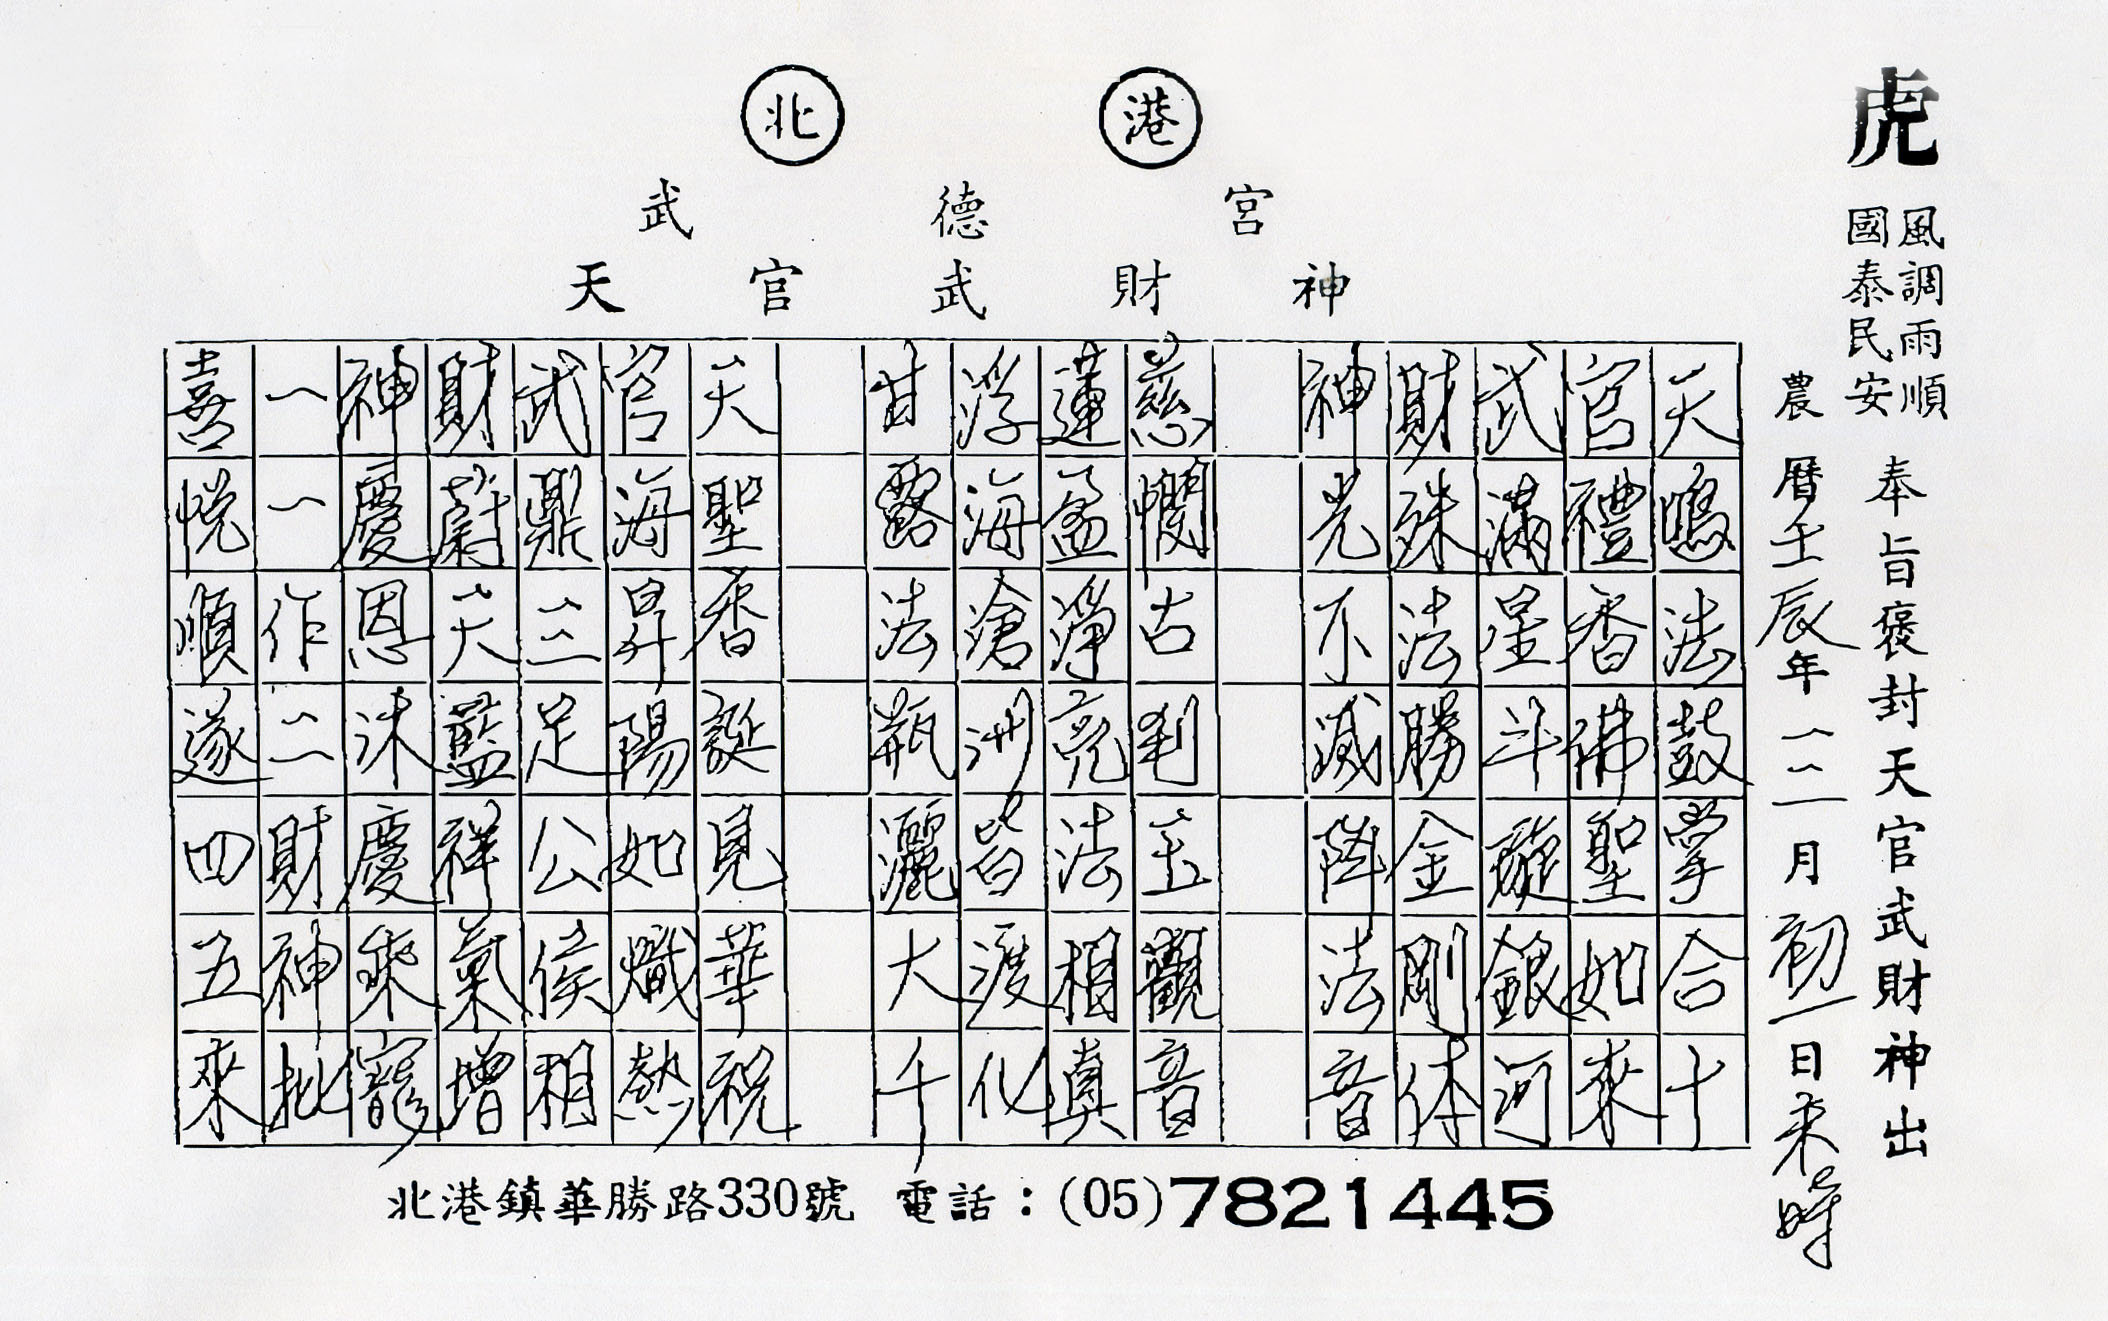 北 港
武德宮
天官武財神
虎
風調雨順
國泰民安
奉旨褒封天官武財神出
農曆壬辰年一二月初一日未時
天鳴法鼓掌合十
官禮香佛聖如來
武滿星斗璇銀河
財殊法勝金剛体
神光下滅降法音
慈憫古剎玉觀音
蓮盆淨亮法相真
浮海滄洲皆渡化
甘露法瓶灑大千
天聖香誕見華祝
官海昇陽如熾熱
武鼎三足公侯相
財蔚天藍祥氣增
神慶恩沐慶乘寵
一一作二財神批
喜悅順遂四五來
北港鎮華勝路330號 電話：(05)7821445